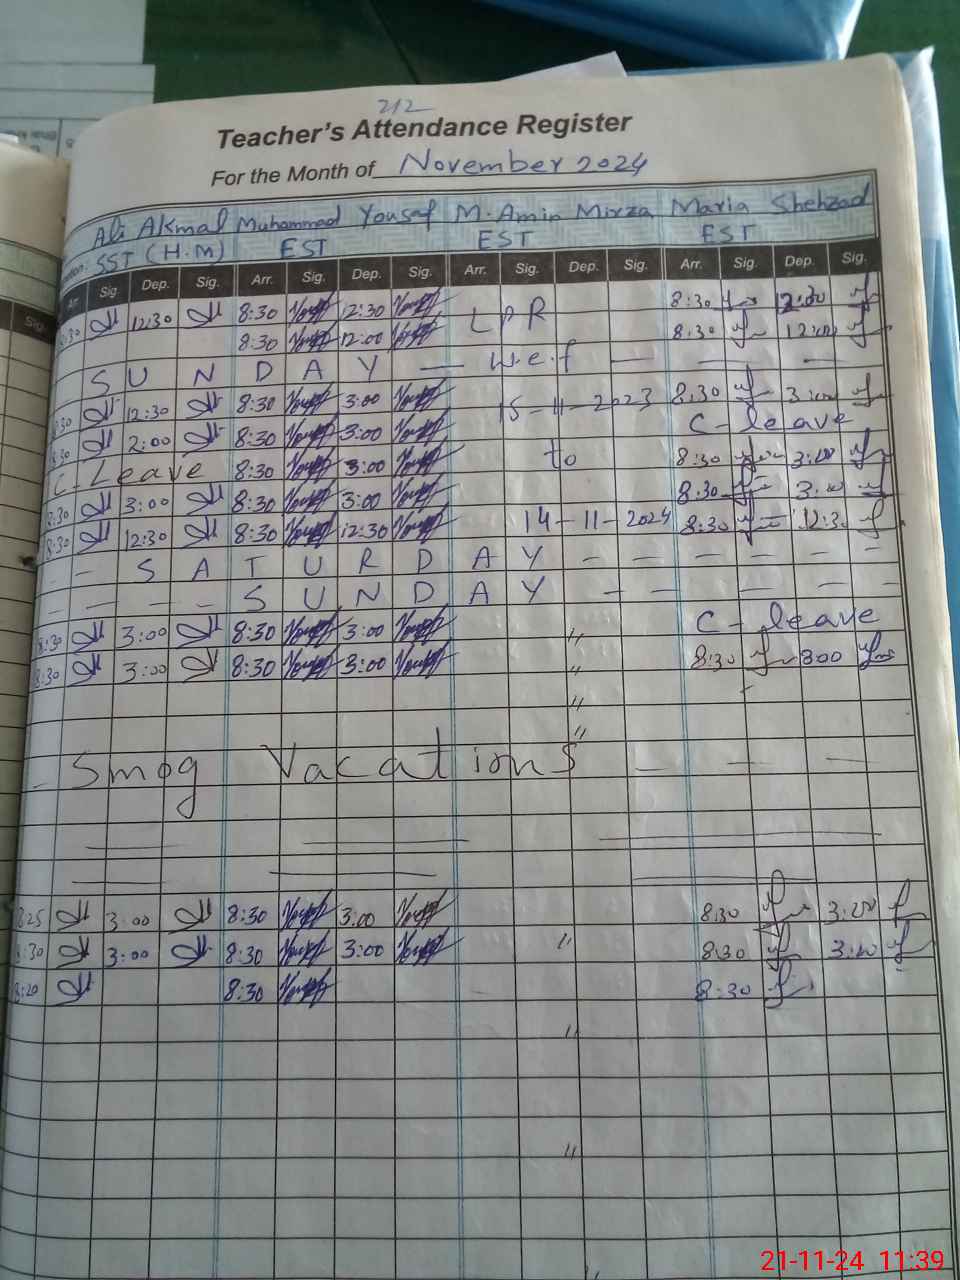 212
Teacher's Attendance Register
For the Month of November 2024
Ali Akmal Muhammad Yousaf M. Amin Mirza Maria Shehzad
SST (H.M) EST EST EST
Arr. Sig Dep. Sig. Arr. Sig. Dep. Sig. Arr. Sig. Dep. Sig. Arr. Sig. Dep. Sig.
8:30 12:30 8:30 12:30 LPR 8:30 12:30
8:30 12:00 8:30 12:00
SUNDAY — w.e.f — — —
8:30 12:30 8:30 3:00 15-11-2023 8:30 3:00
8:30 2:00 8:30 3:00 C-leave
C-Leave 8:30 3:00 to 8:30 3:00
8:30 3:00 8:30 3:00 8:30 3:00
8:30 12:30 8:30 12:30 14-11-2024 8:30 12:30
— — SATURDAY — — — — — —
— — — — SUNDAY — — — — —
8:30 3:00 8:30 3:00 " C-leave
8:30 3:00 8:30 3:00 " 8:30 3:00
"
"
– Smog Vacations — — —
8:25 3:00 8:30 3:00 8:30 3:00
8:30 3:00 8:30 3:00 " 8:30 3:00
8:20 8:30 8:30
"
"
"
21-11-24 11:39